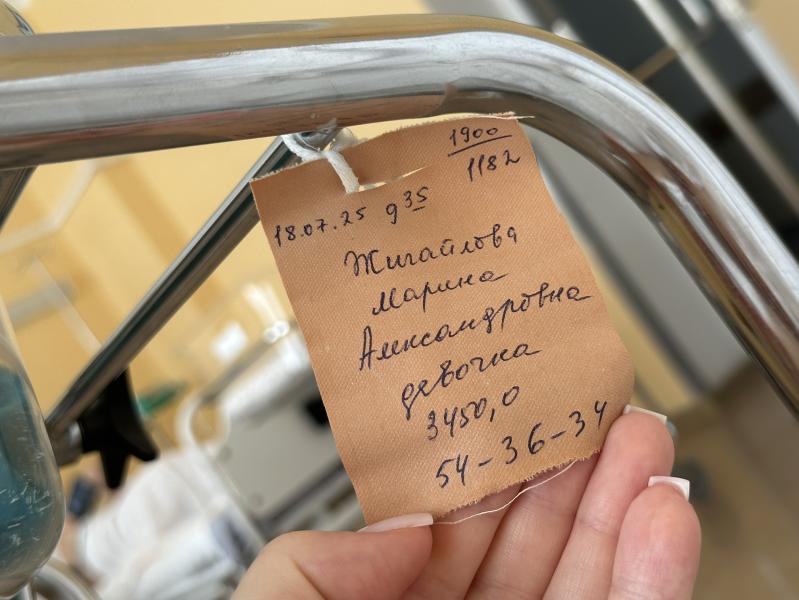 1900
1182
18.07.25 9 35
Жигайлова
Марина
Александровна
девочка
3450,0
54-36-34